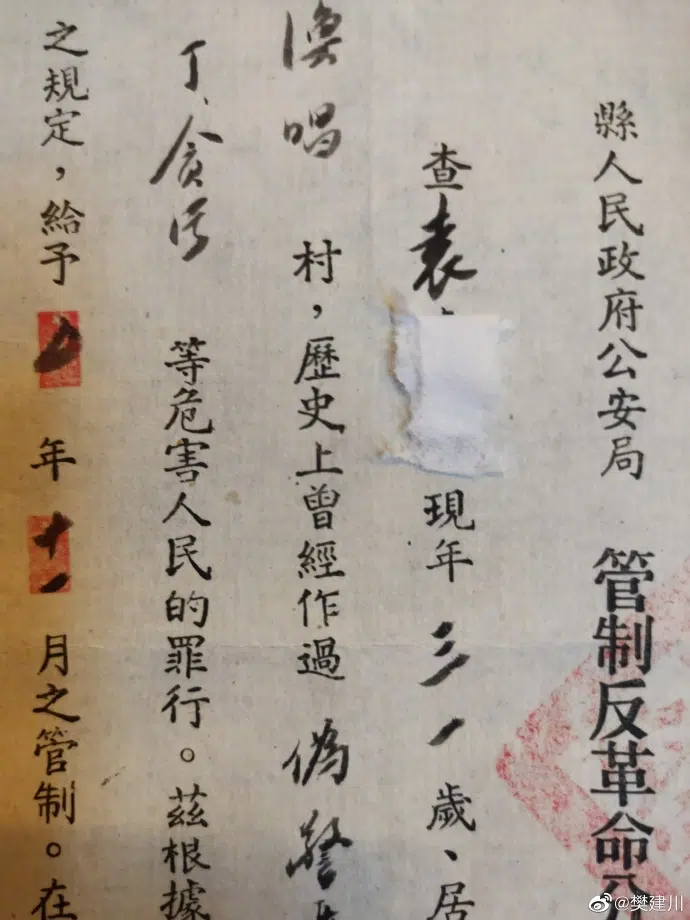 縣人民政府公安局 管制反革命
查袁 現年三一歲、居
演唱村，歷史上曾經作過偽警
丁、貪污等危害人民的罪行。茲根據
之規定，給予 年十一月之管制。在
@樊建川